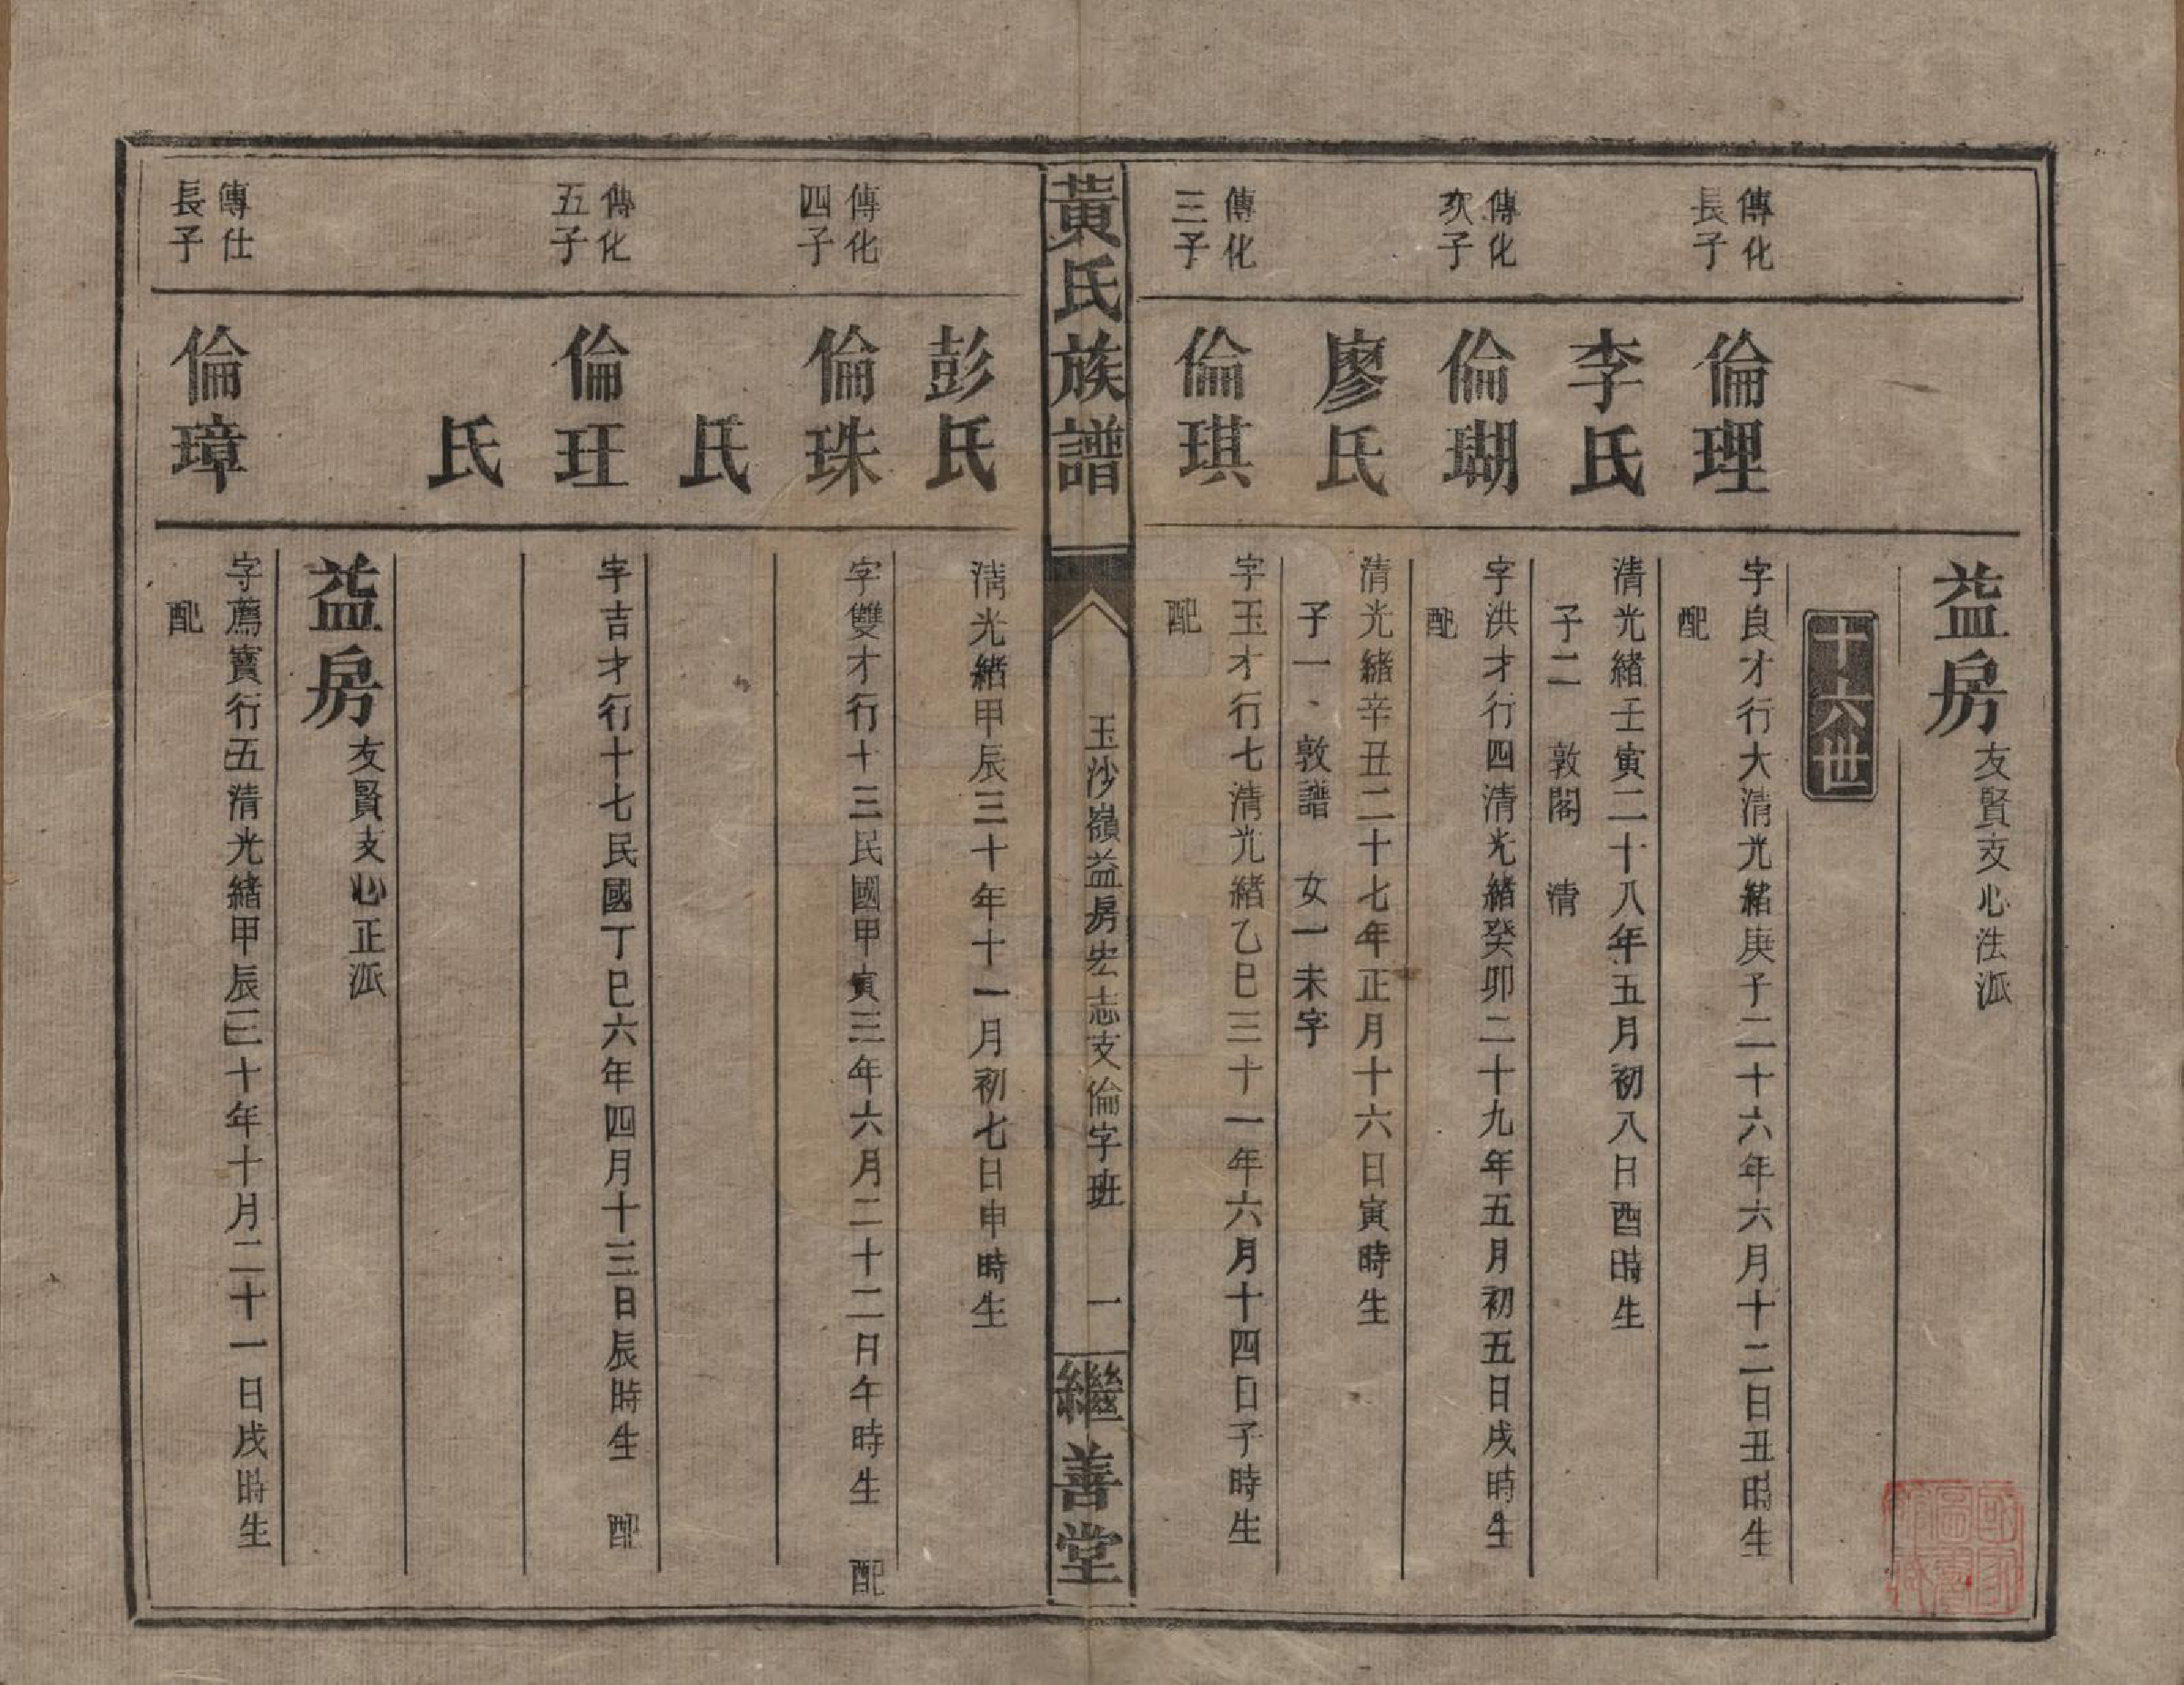 益房 友賢支心法派
十六世
傳化長子
倫理
字良才行大清光緒庚子二十六年六月十二日丑時生
配
李氏
清光緒壬寅二十八年五月初八日酉時生
子二 敦閣 清
傳化次子
倫瑚
字洪才行四清光緒癸卯二十九年五月初五日戌時生
配
廖氏
清光緒辛丑二十七年正月十六日寅時生
子一 敦譜 女一未字
傳化三子
倫琪
字玉才行七清光緒乙巳三十一年六月十四日子時生
配
黃氏族譜 玉沙嶺益房宏志支倫字班 一 繼善堂
彭氏
清光緒甲辰三十年十一月初七日申時生
傳化四子
倫珠
字雙才行十三民國甲寅三年六月二十二日午時生 配
氏
傳化五子
倫玨
字吉才行十七民國丁巳六年四月十三日辰時生 配
氏
益房 友賢支心正派
傳仕長子
倫璋
字薦賓行五清光緒甲辰三十年十月二十一日戌時生
配